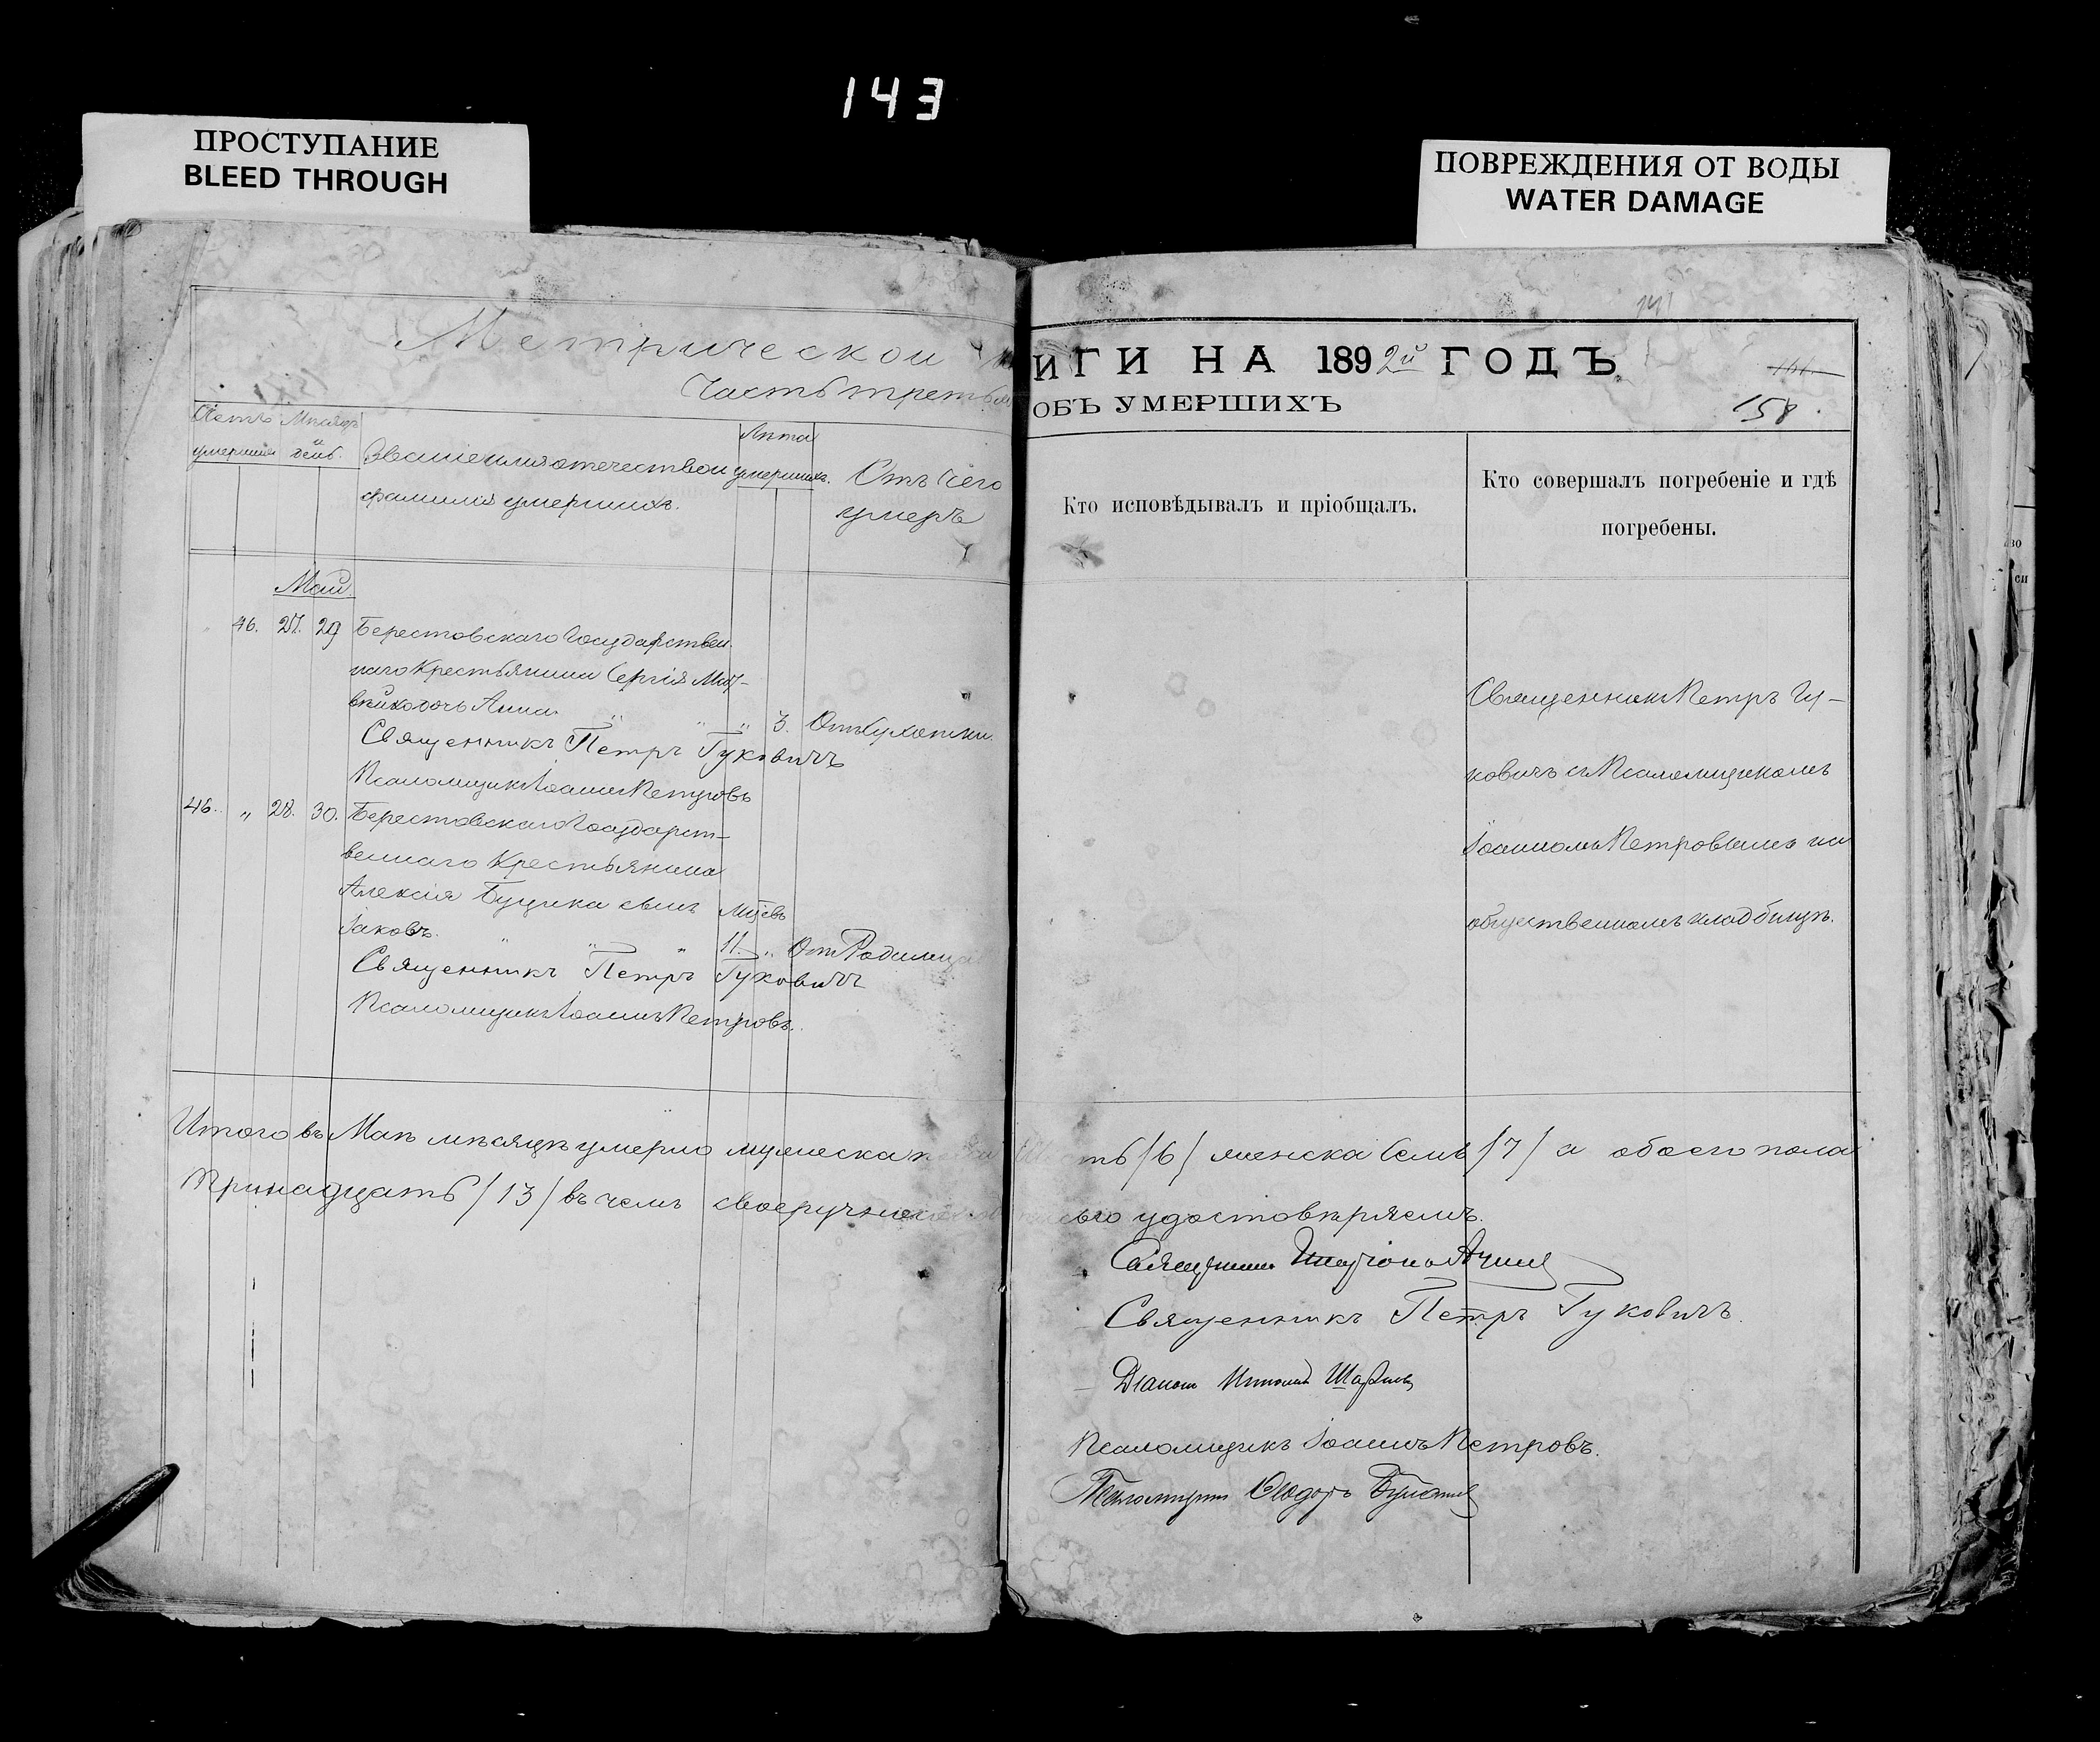 143
ПРОСТУПАНИЕ
BLEED THROUGH
ПОВРЕЖДЕНИЯ ОТ ВОДЫ
WATER DAMAGE
Метрической
Часть третья
Счетъ умершихъ
Мѣсяцъ и день.
Званіе имя отечество и
фамилія умершихъ.
Лѣта умершихъ.
Отъ чего
умеръ
Май
46. 27. 29 Берестовскаго Государствен-
наго Крестьянина Сергія
дочь Анна. " " " 3.
Священникъ Петръ Гуковичъ
Псаломщикъ Іоаннъ Петровъ
46. " 28. 30. Берестовскаго Государст-
веннаго Крестьянина
Алексія Буцика сынъ мцевъ
Іаковъ. " " " 11. " От Родимца
Священникъ Петръ Гуковичъ
Псаломщикъ Іоаннъ Петровъ.
Итого въ Маѣ мѣсяцѣ умерло мужеска
Тринадцать /13/ въ чемъ
141
ИГИ НА 1892й ГОДЪ
ОБЪ УМЕРШИХЪ
158.
Кто исповѣдывалъ и пріобщалъ.
Кто совершалъ погребеніе и гдѣ
погребены.
Священникъ Петръ Гу-
ковичъ съ Псаломщикомъ
Іоанномъ Петровымъ на
общественномъ кладбищѣ.
/6/ женска Семь /7/ а обоего пола
удостовѣряемъ.
Священникъ
Священникъ Петръ Гуковичъ.
Діаконъ
Псаломщикъ Іоаннъ Петровъ.
Псаломщикъ Ѳеодоръ